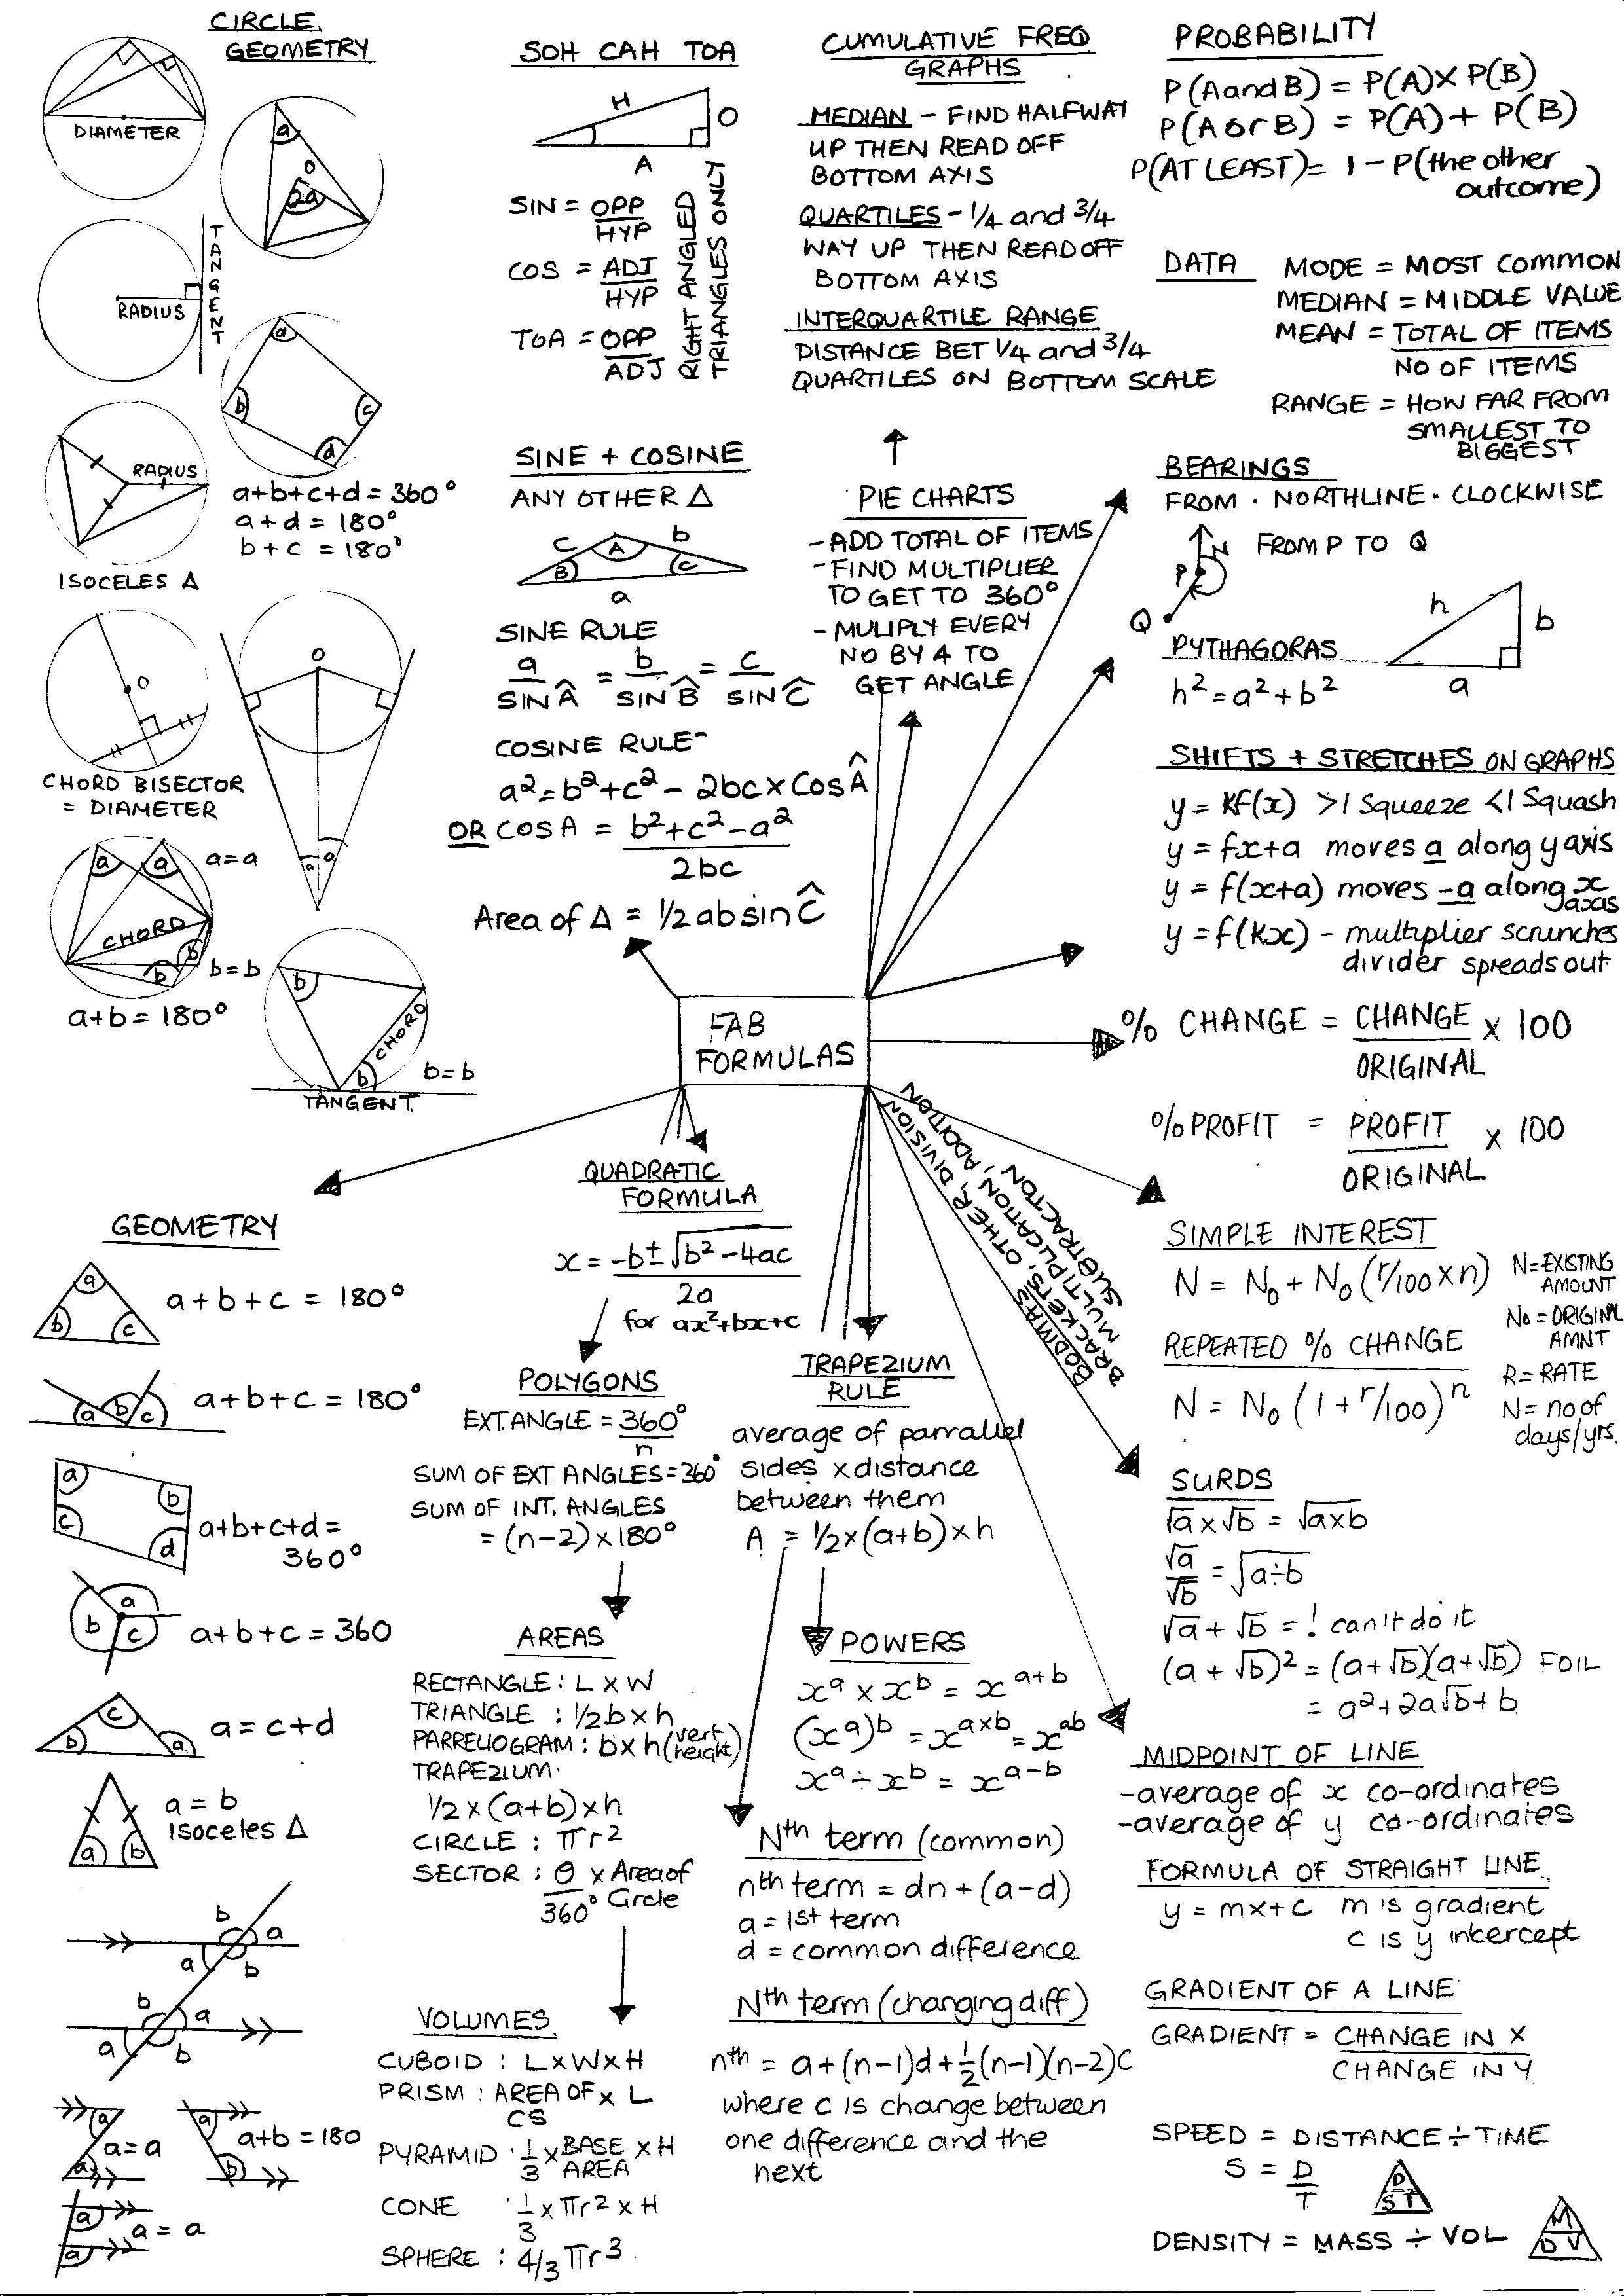 CIRCLE
GEOMETRY
DIAMETER
a
O
2a
RADIUS
TANGENT
a
b
c
d
a+b+c+d = 360°
a+d = 180°
b+c = 180°
RADIUS
ISOCELES Δ
O
CHORD BISECTOR
= DIAMETER
O
a a
a a
a=a
CHORD
b b
b=b
a+b = 180°
b
CHORD
b
b=b
TANGENT
SOH CAH TOA
H
O
A
SIN = OPP
HYP
COS = ADJ
HYP
TOA = OPP
ADJ
RIGHT ANGLED
TRIANGLES ONLY
SINE + COSINE
ANY OTHER Δ
c A b
B c
a
SINE RULE
a = b = c
SIN Â SIN B̂ SIN Ĉ
COSINE RULE
a² = b²+c² - 2bc x Cos Â
OR COS A = b²+c²-a²
2bc
Area of Δ = 1/2 ab sin Ĉ
CUMULATIVE FREQ
GRAPHS
MEDIAN - FIND HALFWAY
UP THEN READ OFF
BOTTOM AXIS
QUARTILES - 1/4 and 3/4
WAY UP THEN READ OFF
BOTTOM AXIS
INTERQUARTILE RANGE
DISTANCE BET 1/4 and 3/4
QUARTILES ON BOTTOM SCALE
PIE CHARTS
- ADD TOTAL OF ITEMS
- FIND MULTIPLIER
TO GET TO 360°
- MULIPLY EVERY
NO BY 4 TO
GET ANGLE
PROBABILITY
P(A and B) = P(A) x P(B)
P(A or B) = P(A) + P(B)
P(AT LEAST) = 1 - P(the other
outcome)
DATA MODE = MOST COMMON
MEDIAN = MIDDLE VALUE
MEAN = TOTAL OF ITEMS
NO OF ITEMS
RANGE = HOW FAR FROM
SMALLEST TO
BIGGEST
BEARINGS
FROM · NORTHLINE · CLOCKWISE
N
P
Q
FROM P TO Q
PYTHAGORAS
h² = a² + b²
h
b
a
SHIFTS + STRETCHES ON GRAPHS
y = Kf(x) >1 Squeeze <1 Squash
y = fx+a moves a along y axis
y = f(x+a) moves -a along x
axis
y = f(Kx) - multiplier scrunches
divider spreads out
FAB
FORMULAS
% CHANGE = CHANGE x 100
ORIGINAL
% PROFIT = PROFIT x 100
ORIGINAL
SIMPLE INTEREST
N = N₀ + N₀ (r/100 x n)
N = EXISTING
AMOUNT
N₀ = ORIGINL
AMNT
R = RATE
N = no of
days/yrs.
REPEATED % CHANGE
N = N₀ (1 + r/100)ⁿ
BODMAS
BRACKETS, OTHER, DIVISION
MULTIPLICATION, ADDITION
SUBTRACTON
SURDS
√a x √b = √axb
√a = √a÷b
√b
√a + √b = ! can't do it
(a + √b)² = (a+√b)(a+√b) FOIL
= a² + 2a√b + b
MIDPOINT OF LINE
- average of x co-ordinates
- average of y co-ordinates
FORMULA OF STRAIGHT LINE
y = mx + c m is gradient
c is y intercept
GRADIENT OF A LINE
GRADIENT = CHANGE IN X
CHANGE IN Y
SPEED = DISTANCE ÷ TIME
S = D
T
D
S T
DENSITY = MASS ÷ VOL
M
D V
GEOMETRY
a
b c
a + b + c = 180°
a b c
a + b + c = 180°
a
b
c
d
a+b+c+d =
360°
a
b c
a + b + c = 360
c
b a
a = c + d
a b
a = b
Isoceles Δ
b a
a b
b a
a b
a
a
a = a
a
b
a+b = 180
a
a
a = a
QUADRATIC
FORMULA
x = -b ± √b² - 4ac
2a
for ax²+bx+c
POLYGONS
EXT. ANGLE = 360°
n
SUM OF EXT ANGLES = 360°
SUM OF INT. ANGLES
= (n-2) x 180°
AREAS
RECTANGLE : L x W
TRIANGLE : 1/2 b x h
PARRELLOGRAM : b x h (vert
height)
TRAPEZIUM
1/2 x (a+b) x h
CIRCLE : πr²
SECTOR : θ x Area of
360° Circle
VOLUMES
CUBOID : L x W x H
PRISM : AREA OF x L
CS
PYRAMID · 1/3 x BASE x H
AREA
CONE · 1/3 x πr² x H
SPHERE : 4/3 πr³
TRAPEZIUM
RULE
average of parrallel
sides x distance
between them
A = 1/2 x (a+b) x h
POWERS
xᵃ x xᵇ = xᵃ⁺ᵇ
(xᵃ)ᵇ = xᵃˣᵇ = xᵃᵇ
xᵃ ÷ xᵇ = xᵃ⁻ᵇ
Nth term (common)
nth term = dn + (a-d)
a = 1st term
d = common difference
Nth term (changing diff)
nth = a + (n-1)d + 1/2(n-1)(n-2)C
where c is change between
one difference and the
next